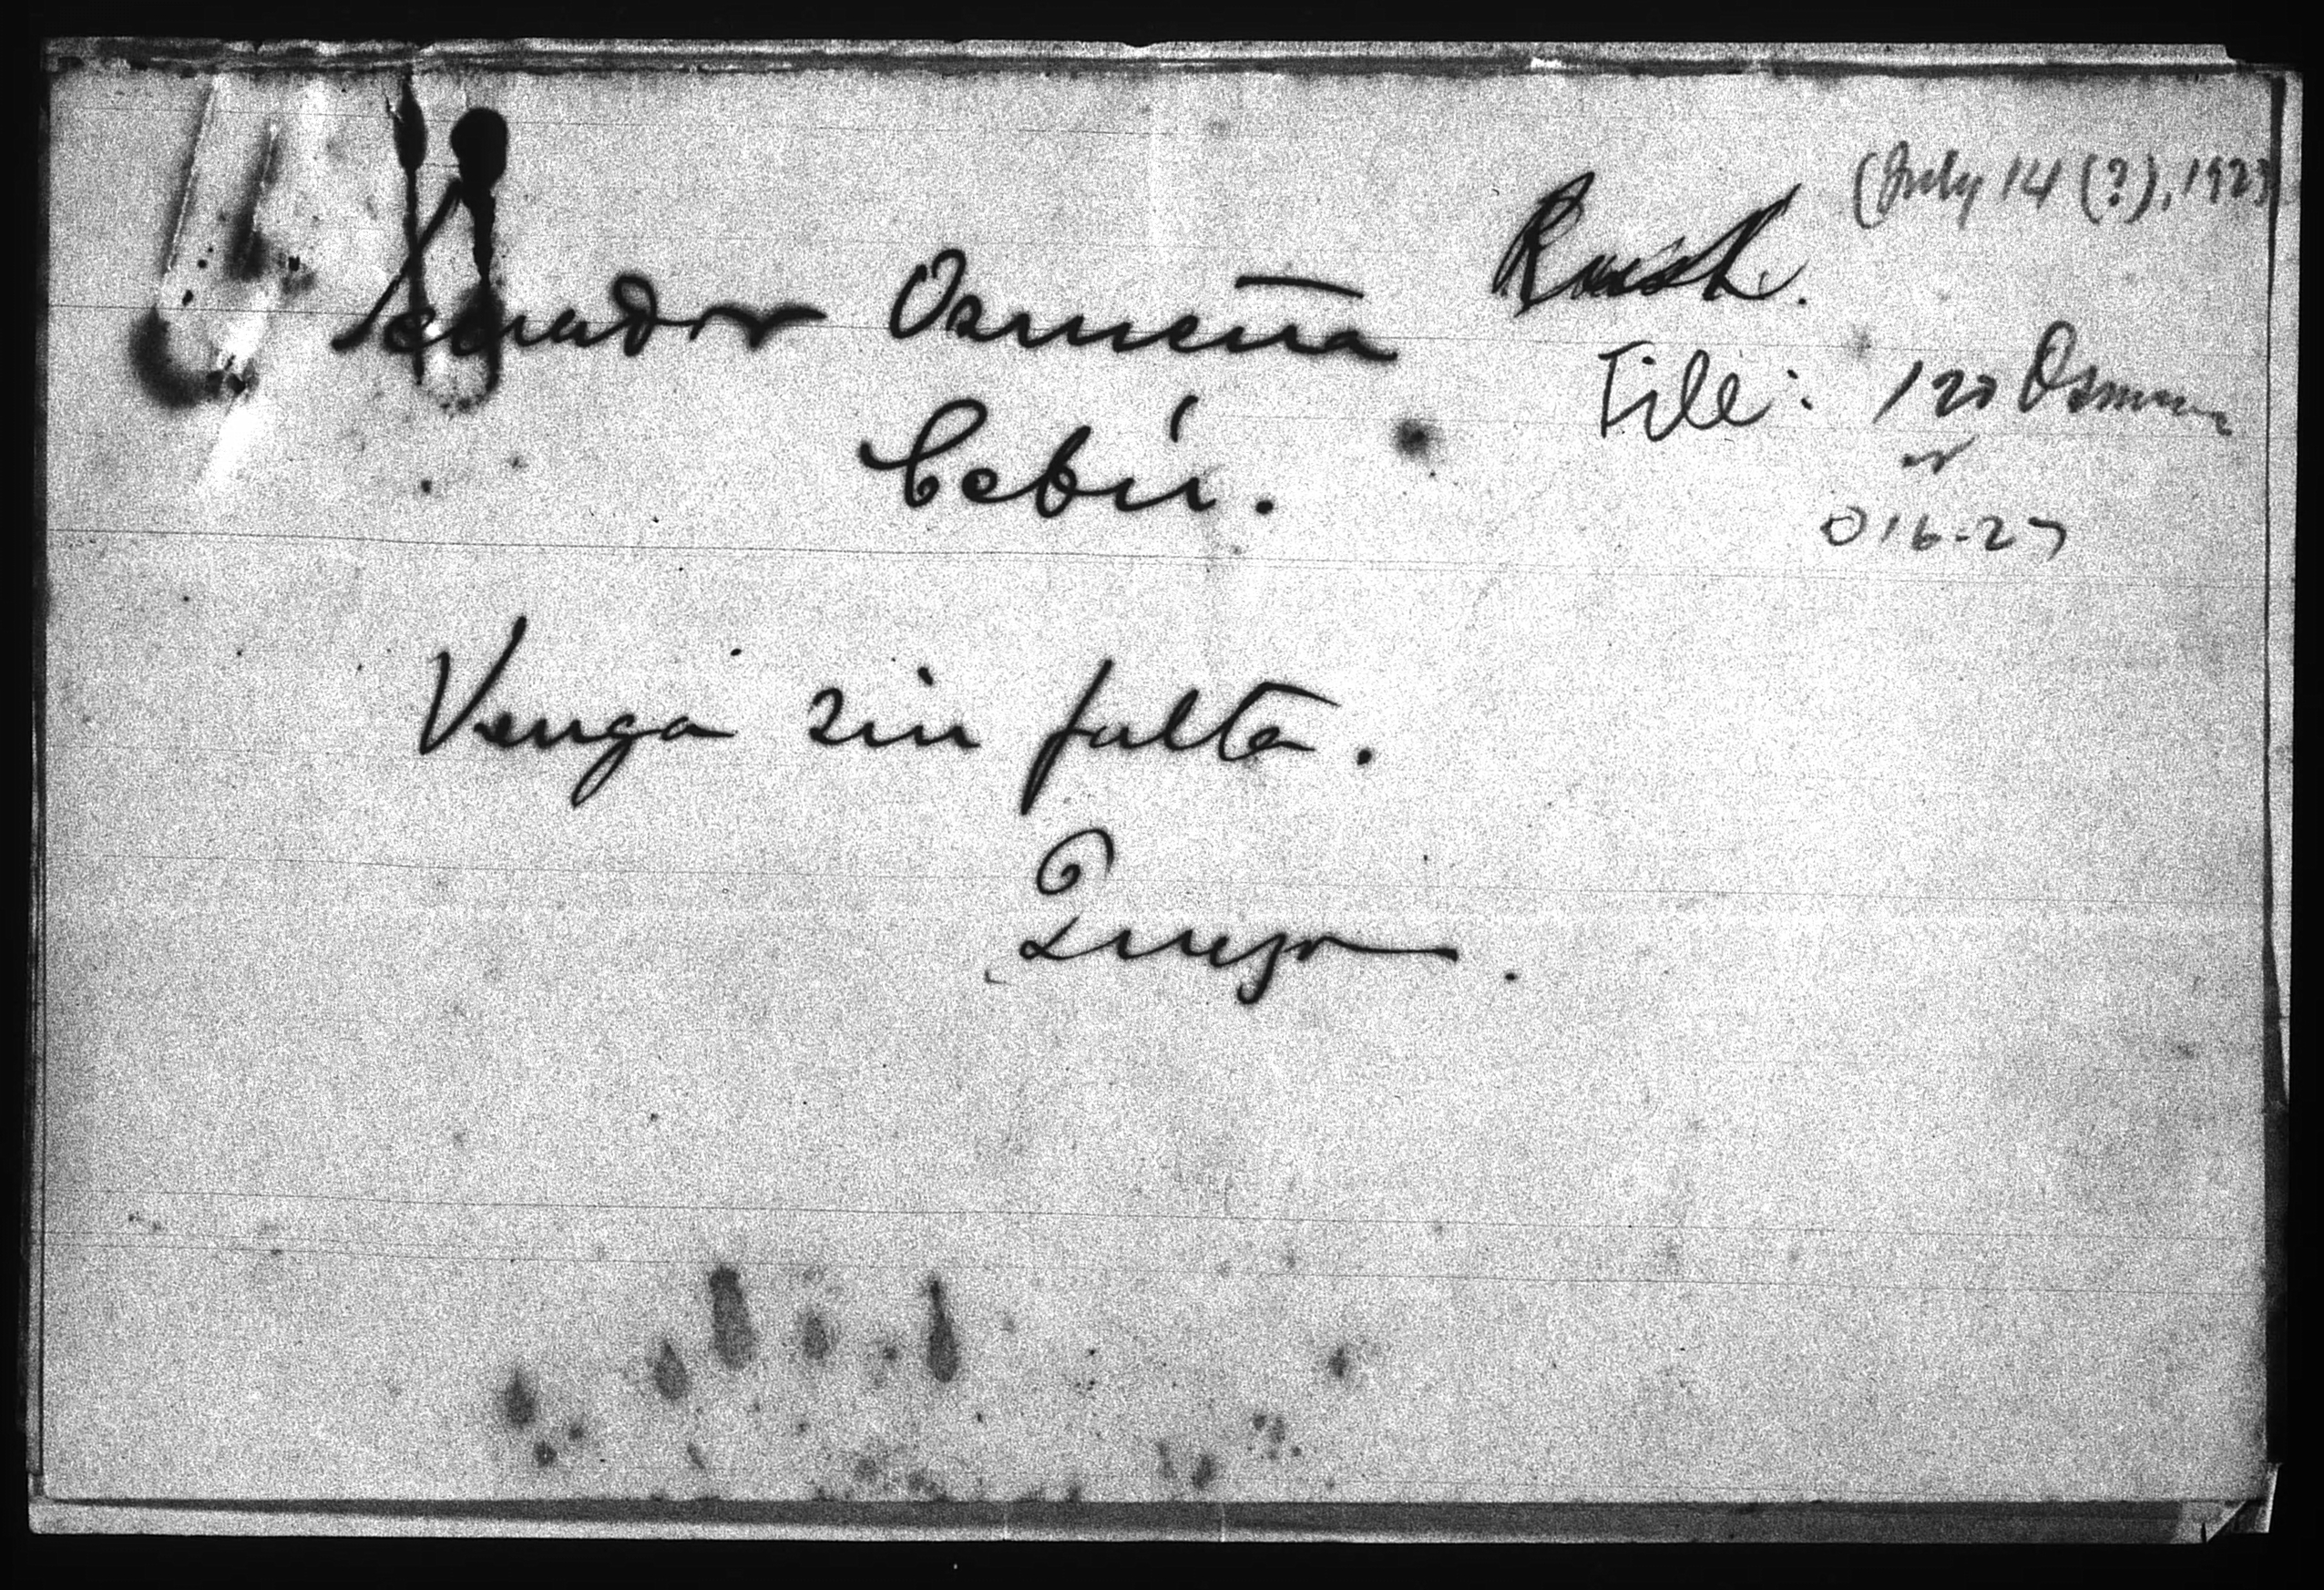 (July 14 (?), 1923
Rush.
Senador Osmeña
File: 120 Osmena
Cebú.
016-27
Venga sin falta.
Quezon.